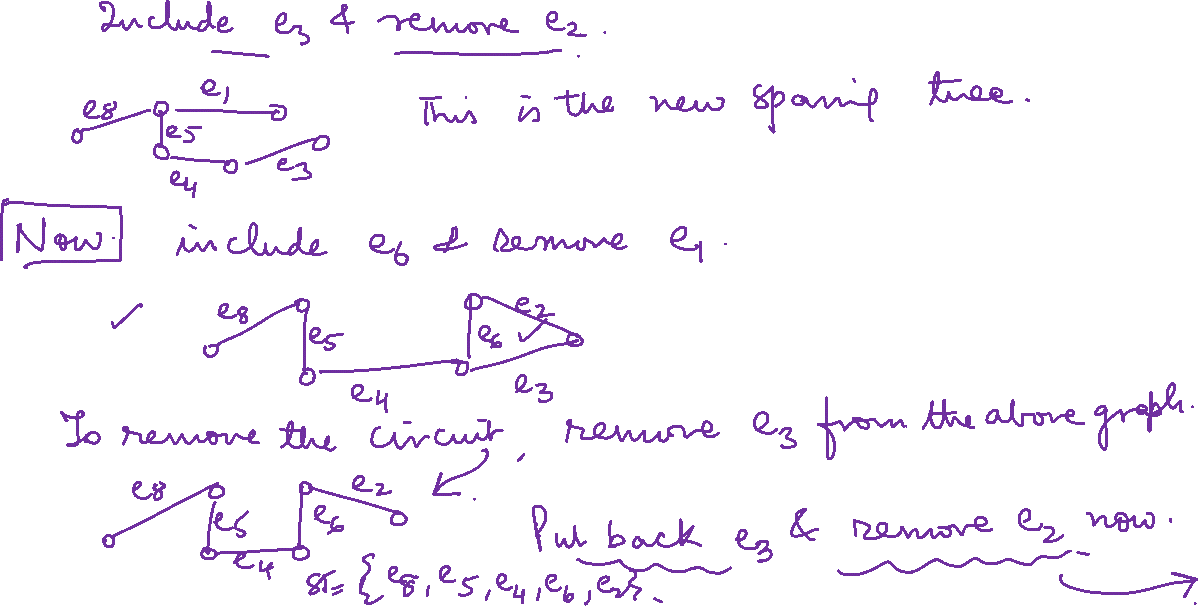 Include e3 & remove e2.
e8 e1
e5
e4 e3
This is the new spannig tree.
Now include e6 & remove e1.
e8 e2
e5 e6
e4 e3
To remove the circuit, remove e3 from the above graph.
e8 e2
e5 e6
e4
Put back e3 & remove e2 now.
ST = {e8, e5, e4, e6, e2}.